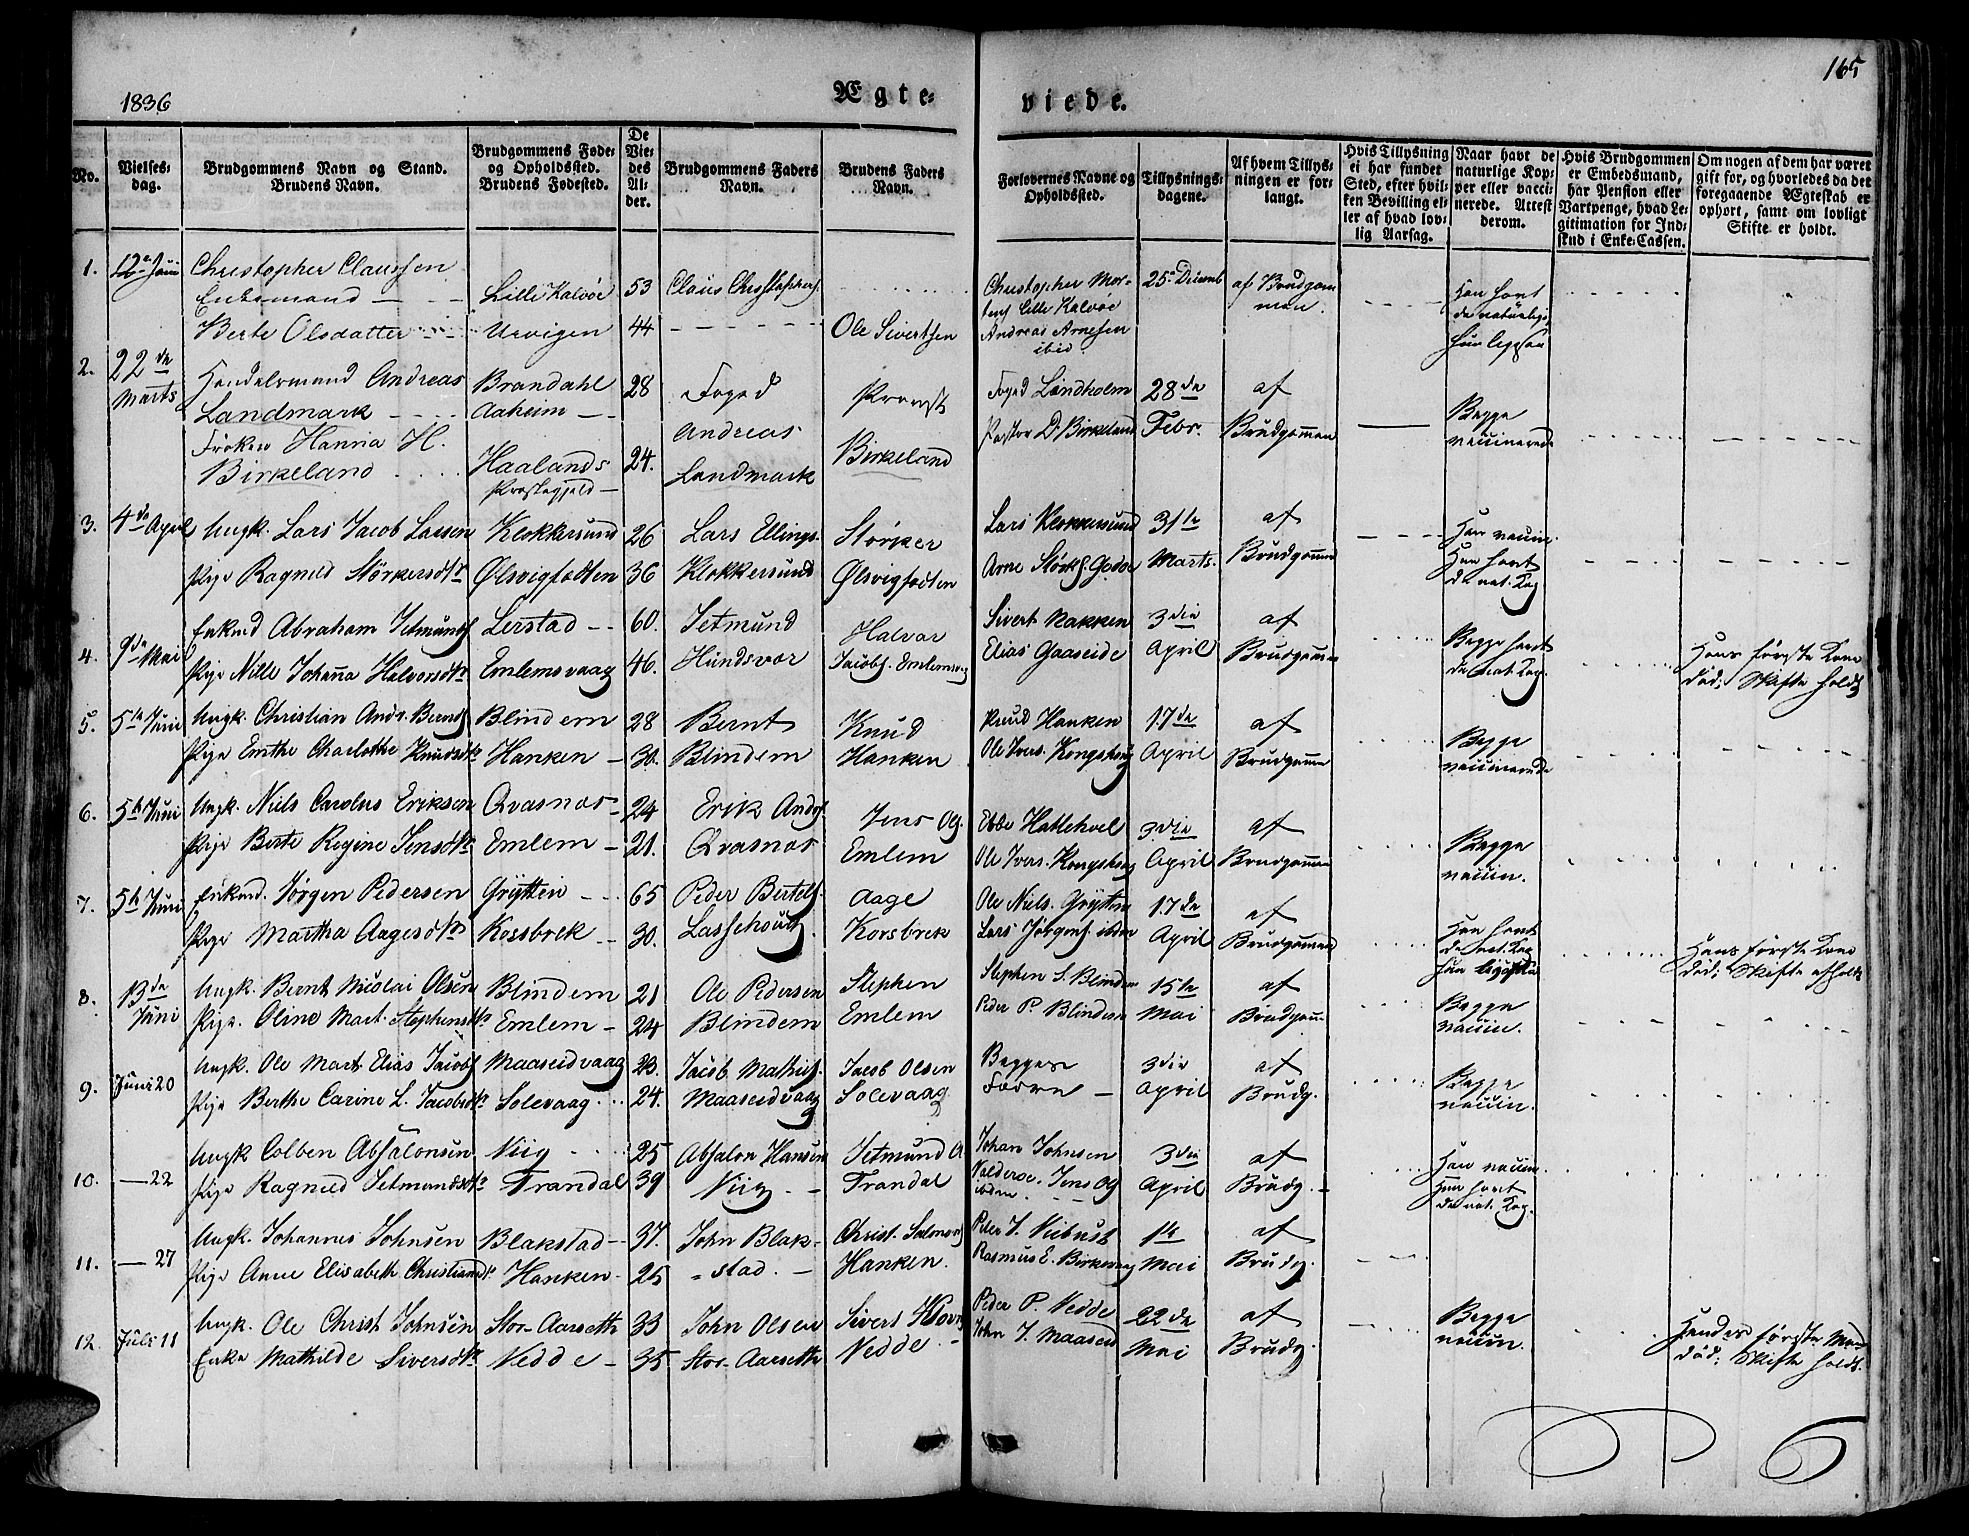 1836
Ægte-
viede.
165
No.
Vielses-
dag.
Brudgommens Navn og Stand.
Brudens Navn.
Brudgommens Føde-
og Opholdssted.
Brudens Fødested.
De
Vie-
des
Al-
der.
Brudgommens Faders
Navn.
Brudens Faders
Navn.
Forlovernes Navne og
Opholdssted.
Tillysnings-
dagene.
Af hvem Tillys-
ningen er for-
langt.
Hvis Tillysning
ei har fundet
Sted, efter hvil-
ken Bevilling el-
ler af hvad lov-
lig Aarsag.
Naar havt de
naturlige Kop-
per eller vacci-
nerede. Attest
derom.
Hvis Brudgommen
er Embedsmand,
har Pension eller
Vartpenge, hvad Le-
gitimation for Ind-
skud i Enke-Cassen.
Om nogen af dem har været
gift før, og hvorledes da det
foregaaende Ægteskab er
ophørt, samt om lovligt
Skifte er holdt.
1.
Christopher Claussen
Enkemand
Lille Kalvøe
53
Berte Olsdatter
44
Ole Sivertsen
Christopher Mor-
Lille Kalvøe
Andreas Arnesen
ibid
af Brudgom
men.
2.
22de
Marts
Handelsmand Andreas
Landmark
Frøken Hanna H.
Birkeland
Brandahl
Aaheim
Haalands
Præstegjeld
28
24.
Foged
Andreas
Landmark
Provst
Birkeland
Foged Landholm
Pastor D. Birkeland
28de
Febr.
af
Brudgommen
Begge
vaccinerede
3.
4de April
Ungk. Lars Jacob Larsen
Pige Ragnild Størkersdtr
Klokkersund
Ølsvigfodten
26
36
Lars Ellings.
Klokkersund
Størker
Ølsvigfodten
Lars Klokkersund
Arne Størks. Godøe
31te
Marts.
af
Brudgommen
Han vaccin.
Hun havt
de nat. Kop.
4.
9de Mai
Enkmd Abraham Jetmunds
Pige Nille Johanna Halvorsdtr
Lerstad
Emlemsvaag
60.
46.
Jetmund
Hundsvær
Halvor
Jacobs. Emlemsvaag
Sivert Nakken
Elias Gaaseide
3die
April
af
Brudgommen
Begge havt
de nat Kop.
Hans første Kone
død; Skifte holdt
5.
5te Juni
Ungk. Christian Andr. Bernts
Pige Emthe Charlothe Knudsdtr
Blindem
Hanken
28
30.
Bernt
Blindem
Knud
Hanken
Knud Hanken
Ole Ivers. Kongshoug
17de
April
af
Brudgommen
Begge
vaccinerede
6.
5te Juni
Ungk. Niels Carolus Erikson
Pige Berte Regine Jensdtr
Qvasnæs
Emlem
24
21.
Erik Ands.
Qvasnæs
Jens Ols.
Emlem
Ebbe Hattehoel
Ole Ivers. Kongshoug
3die
April
af
Brudgommen
Begge
vaccin.
7.
5te Juni
Enkmd. Jørgen Pedersen
Pige Martha Aagesdtr
Gryttin
Korsbrek
65
30.
Peder Bertels.
Aage
Korsbrek
Ole Niels. Gryttin
Lars Jørgens. ibidem
17de
April
af
Brudgommen
Han havt
de nat. Kop
Hans første Kone
død; Skifte afholdt
8.
13de
Juni
Ungk. Bernt Nicolai Olsen
Pige. Oline Mart. Stephensdtr
Blindem
Emlem
21
24
Ole Pedersen
Blindem
Stephen
Emlem
Stephen S. Blindem
Peder P. Blindem
15te
Mai
af
Brudgom
Begge
vaccin.
9.
Juni 20
Ungk. Ole Mart. Elias Jacobs
Pige Berthe Carine L. Jacobsdtr
Maaseidvaag
Solevaag
23.
24.
Jacob Mathis.
Maaseidvaag
Jacob Olsen
Solevaag
Begges
Fædre
3die
April
af
Brudg.
Begge
vaccin.
10.
— 22
Ungk Colben Absalonsen
Pige Ragnild Jetmundsdtr
Viig
Trandal
25
39
Absalon Hansen
Viig
Jetmund O
Trandal
Johan Johnsen
Valderøe. Jens Ols
ibidem
3die
April
af
Brudg.
Han vaccin.
Hun havt
de nat. Kop.
11.
— 27
Ungk. Johannes Johnsen
Pige Anne Elisabeth Christiansdtr
Blakstad
Hanken
37.
25
John Blak-
stad.
Christ. Salomons
Hanken.
Peder J. Viebust
Rasmus E. Birkevaag
1te
Mai
af
Brudg.
12.
Juli 11
Ungk. Ole Christ Johnsen
Enke Mathilde Siversdtr
Stor-Aarseth
Vedde
33
35
John Olsen
Stor-Aarseth
Vedde
Peder P. Vedde
John J. Maaseid
22de
Mai
af
Brudg.
Begge
vaccin.
Hendes første Mand
død; Skifte holdt.